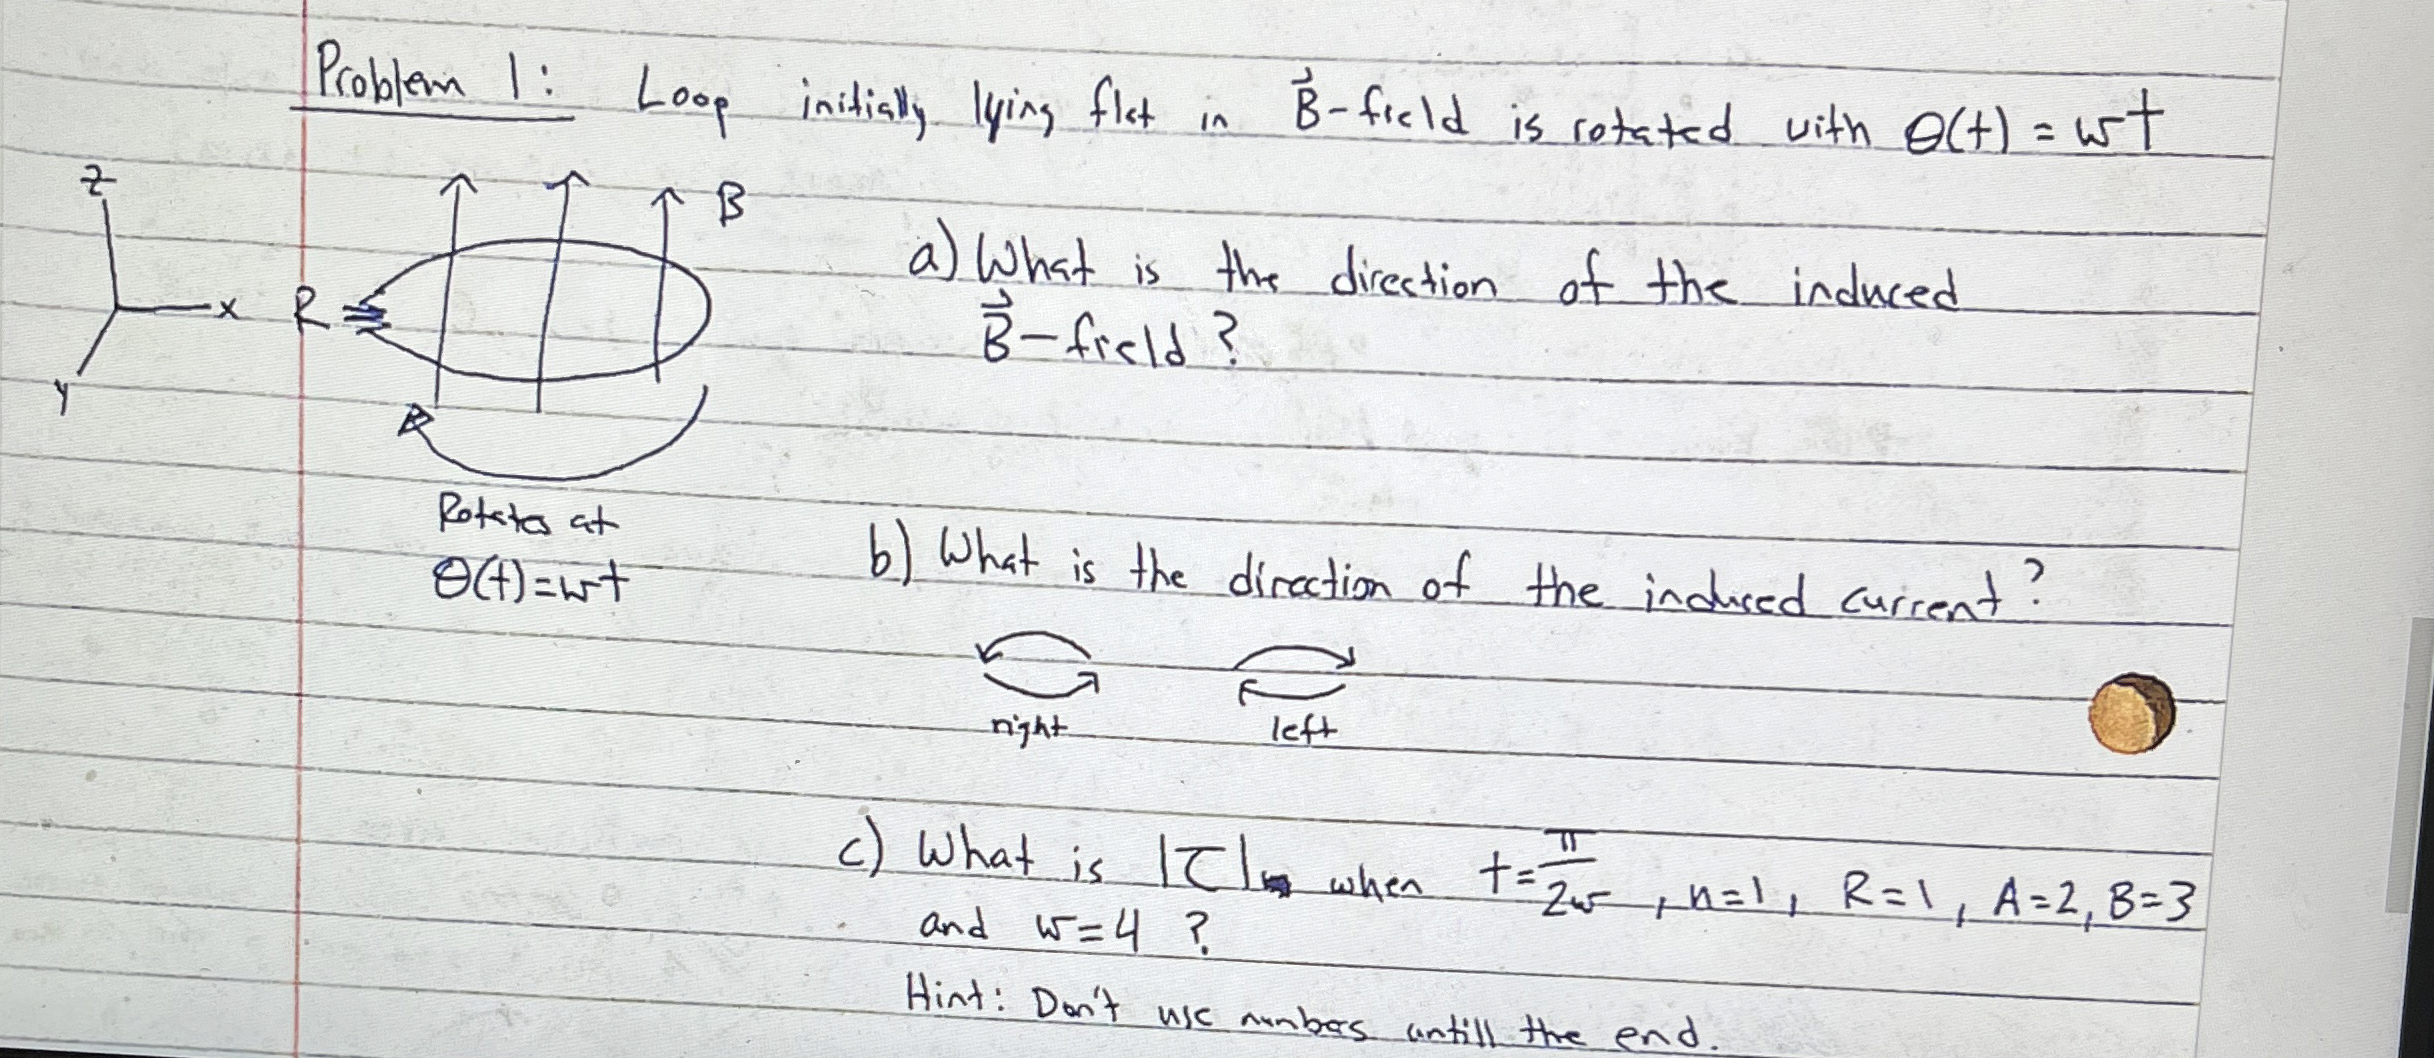 Problem 1: Loop initially lying flat in B⃗-field is rotated with θ(t) = wt
z
B
a) What is the direction of the induced
x R
B⃗-field?
y
Rotates at
θ(t)=wt
b) What is the direction of the induced current?
right left
c) What is |τ| when t=π/2w, n=1, R=1, A=2, B=3
and w=4 ?
Hint: Don't use numbers untill the end.